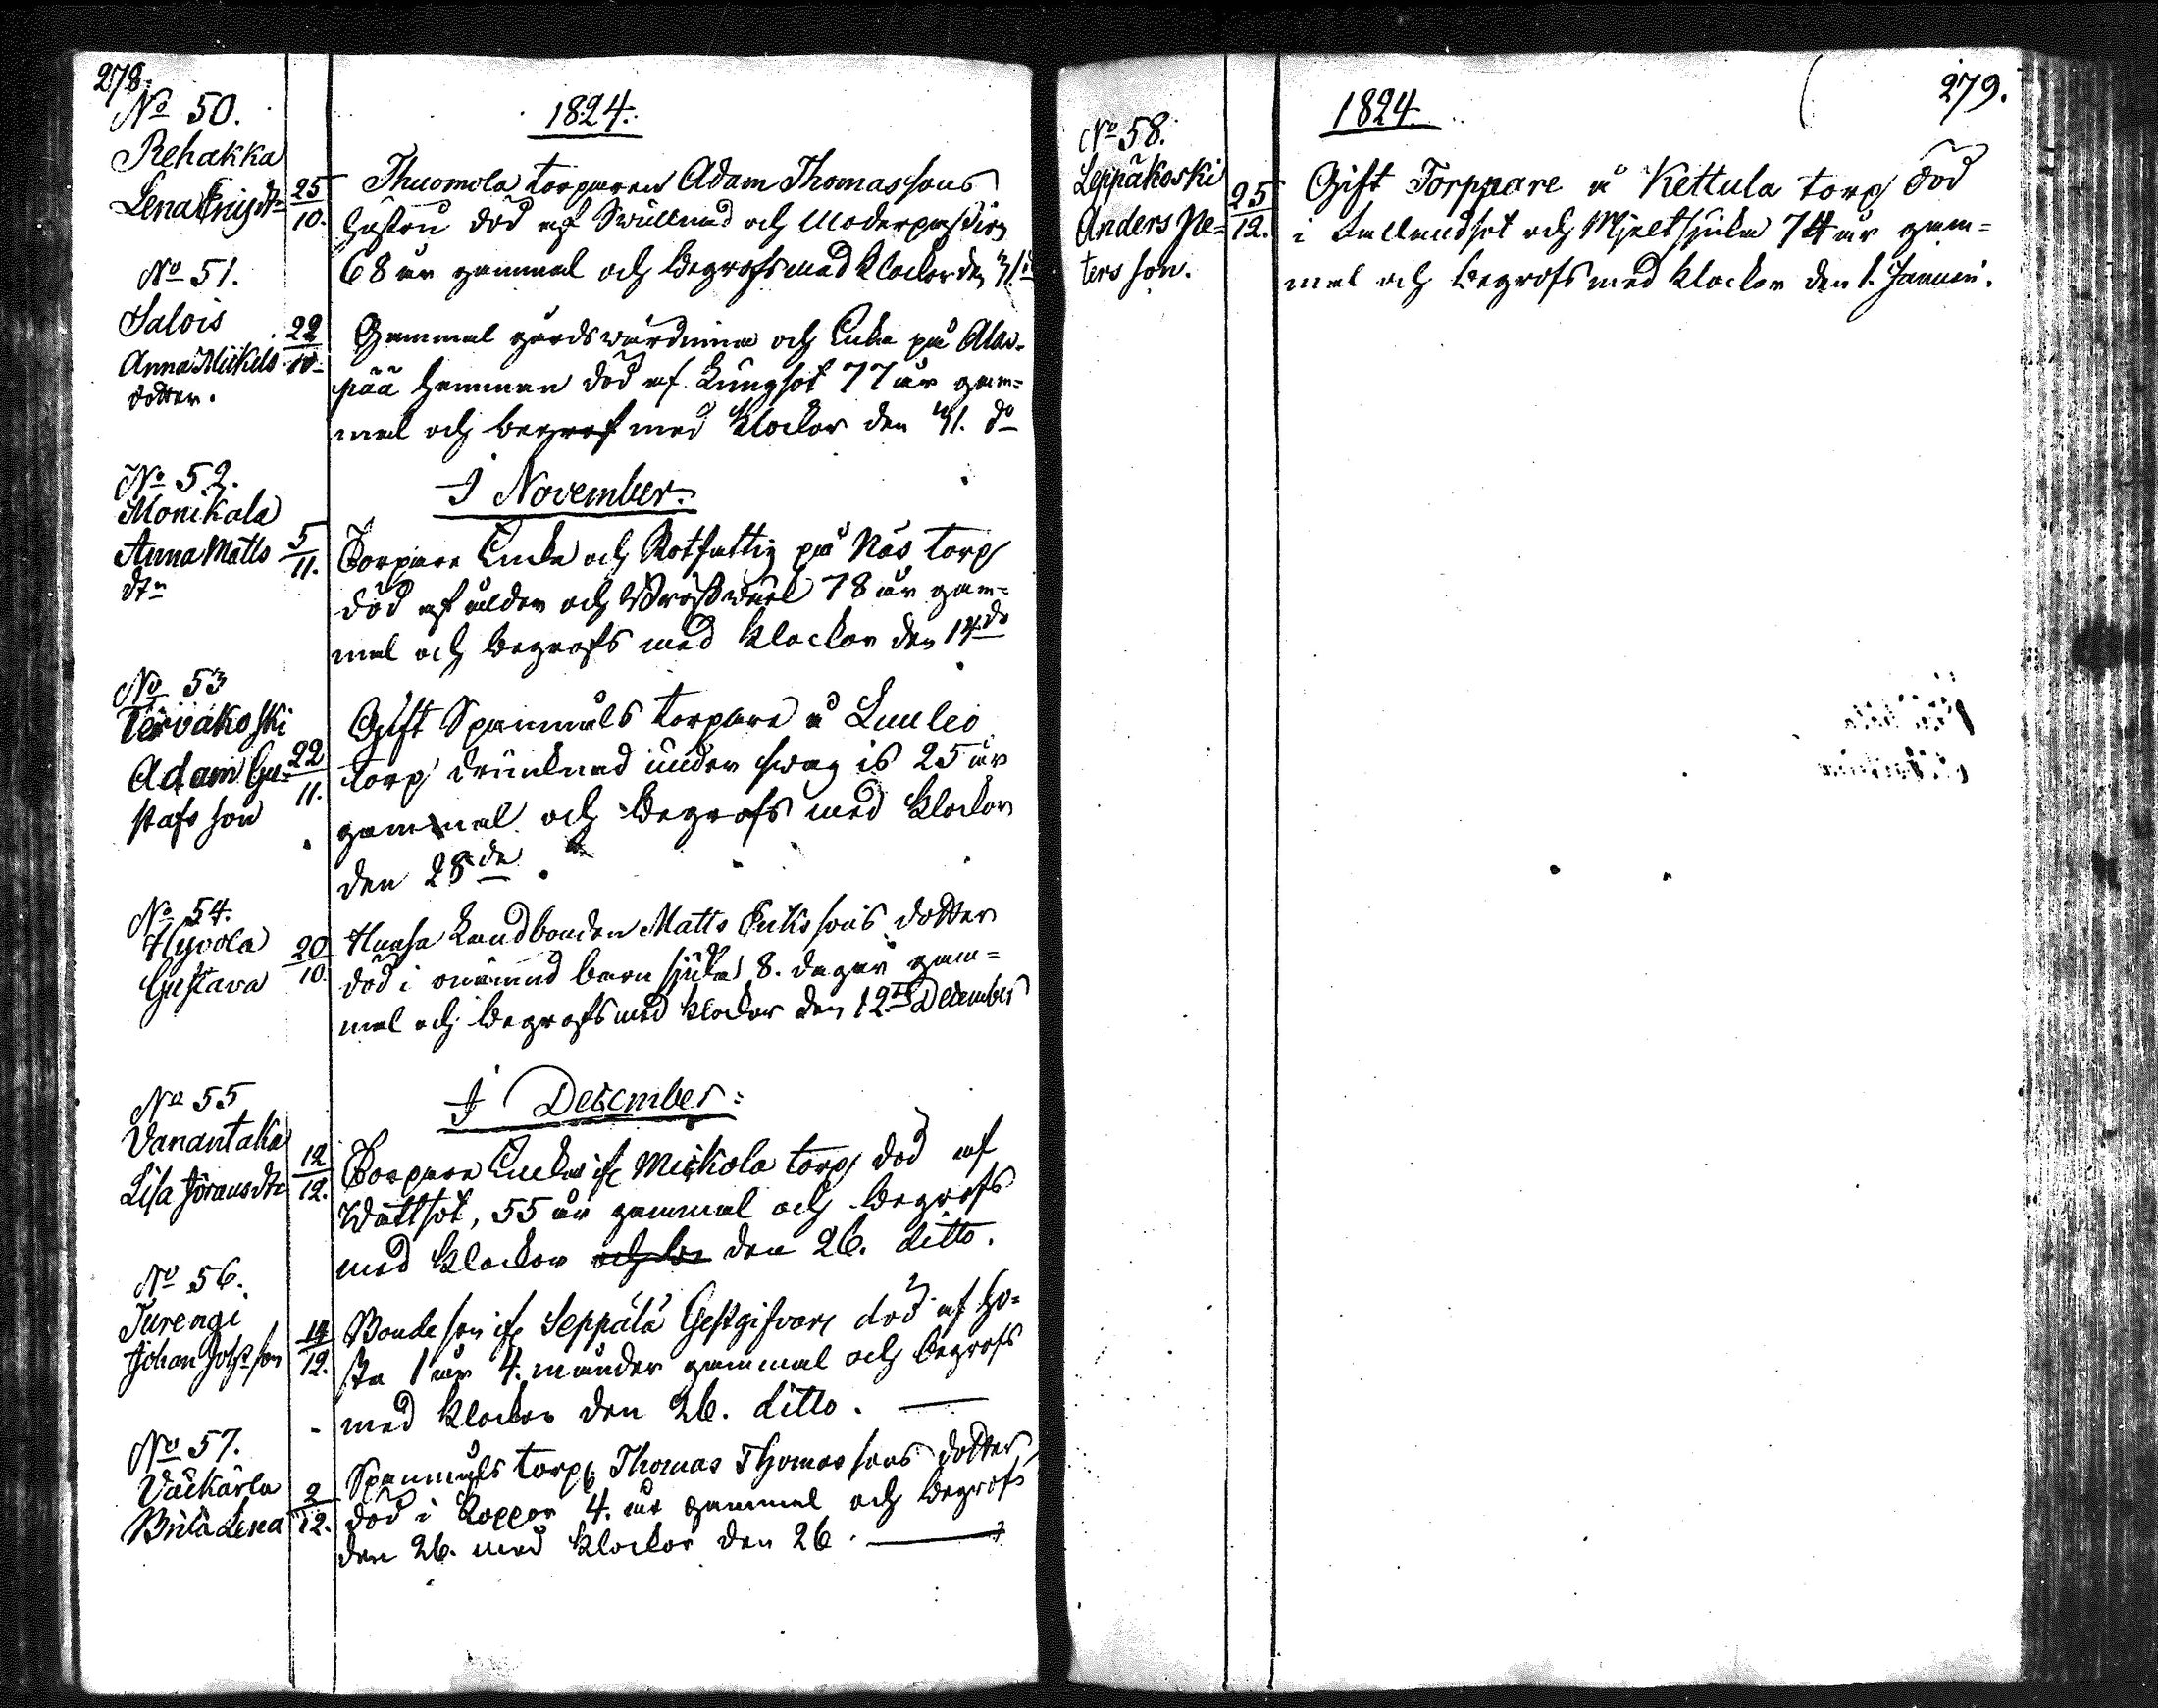 278.
1824.
No 50.
Rehakka
Lena Erigsdr
25/10.
Thuomola torparen Adam Thomassons
hustru död af Swullnad och Moderpassion
68 år gammal och begrofs med klockor den 31 do
No 51.
Salois
Anna Mickels
dotter.
22/10
Gammal gårdswärdinna och Enka på Ala-
pää hemman död af Lungsot 77 år gam=
mal och begrof med klockor den 31. do
I November.
No 52.
Monikala
Anna Matts
dtr
5/11.
Torpare Enka och Rotfattig på Näs torp
död af ålder och Bröstwärk 78 år gam=
mal och begrofs med klockor den 14de
No 53
Tervakoski
Adam Gu=
stafs son
22/11.
Gift Spanmåls torpare å Luulio
torp drunknad under swag is 25 år
gammal och begrofs med klockor
den 28de.
No 54.
Hyvola
Gustava
20/10.
Landbonden Matts Erikssons dotter
död i onämnd barn sjuka 8. dagar gam=
mal och begrofs med klockor den 12te December
I December:
No 55
Vanantaka
Lisa Göransdtr
12/12.
Torpare Enka if Mickola torp död af
Wattsot, 55 år gammal och begrofs
med klockor och be den 26. ditto.
No 56.
Turengi
Johan Johs son
14/12.
Bonde son if Seppälä Gestgifvare död af ho=
sta 1 år 4. månader gammal och begrofs
med klockor den 26. ditto.
No 57.
Väckärlä
Brita Lena
2/12.
Spanmåls torp. Thomas Thomassons dotter
död i koppor 4. år gammal och begrofs
den 26. med klockor den 26.
279.
1824.
No 58.
Leppäkoski
Anders Pe=
ters son.
25/12.
Gift Torppare å Kettula torp död
i fallandsot och Mjeltsjuka 74 år gam=
mal och begrofs med klockor den 1. Januari.